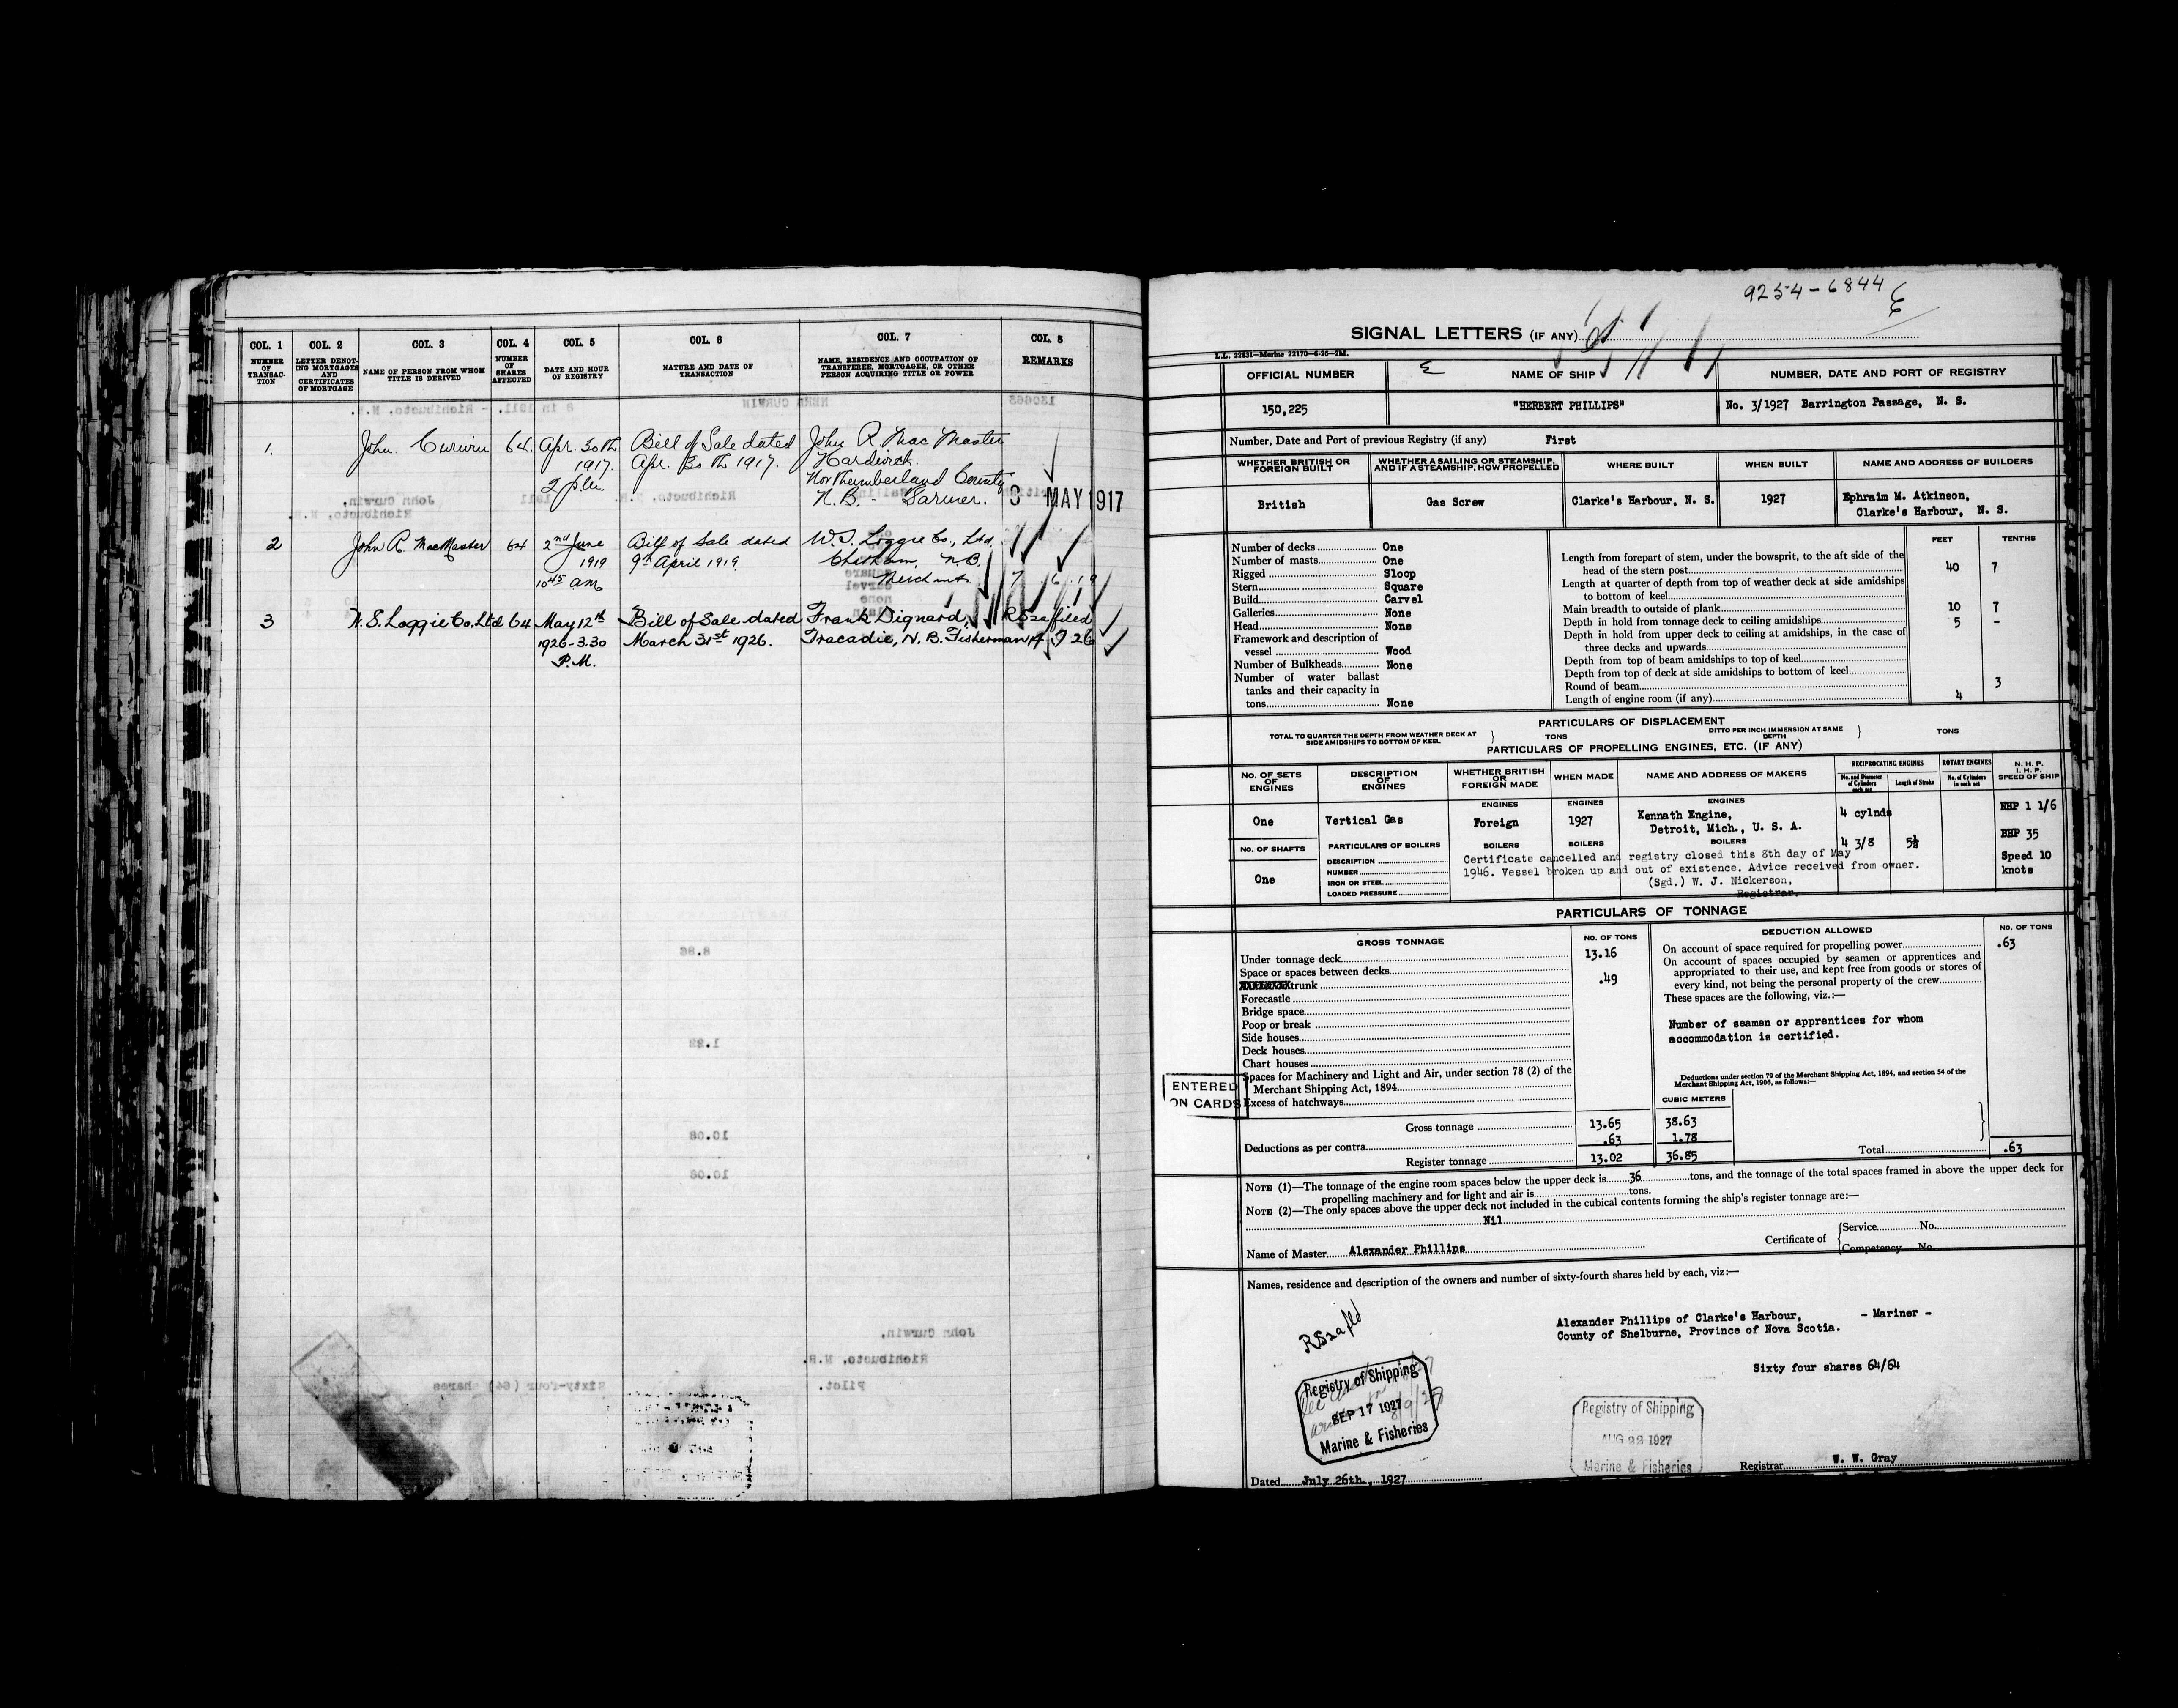 COL. 1 COL. 2 COL. 3 COL. 4 COL. 5 COL. 6 COL. 7 COL. 8
NUMBER OF TRANSAC-TION
LETTER DENOT-ING MORTGAGES AND CERTIFICATES OF MORTGAGE
NAME OF PERSON FROM WHOM TITLE IS DERIVED
NUMBER OF SHARES AFFECTED
DATE AND HOUR OF REGISTRY
NATURE AND DATE OF TRANSACTION
NAME, RESIDENCE AND OCCUPATION OF TRANSFEREE, MORTGAGEE, OR OTHER PERSON ACQUIRING TITLE OR POWER
REMARKS
1. John Curwin 64. Apr. 30th Bill of Sale dated John R. Mac Master
1917. Apr. 30th 1917. Hardwick.
2 p.m. Northumberland County
N.B. - Farmer. 3 MAY 1917
2 John R. MacMaster 64 2nd June Bill of Sale dated W.S. Loggie Co., Ltd.
1919 9th April 1919. Chatham, N.B.
10 45 am Merchants 7 6 19
3 W.S. Loggie Co. Ltd 64 May 12th Bill of Sale dated Frank Dignard, RS2a filed
1926-3.30 March 31st 1926. Tracadie, N.B. Fisherman
P.M.
9254-6844
SIGNAL LETTERS (IF ANY)
L.L. 22831—Marine 22170—6-26—2M.
OFFICIAL NUMBER NAME OF SHIP NUMBER, DATE AND PORT OF REGISTRY
150,225 "HERBERT PHILLIPS" No. 3/1927 Barrington Passage, N. S.
Number, Date and Port of previous Registry (if any) First
WHETHER BRITISH OR FOREIGN BUILT
WHETHER A SAILING OR STEAMSHIP, AND IF A STEAMSHIP, HOW PROPELLED
WHERE BUILT
WHEN BUILT
NAME AND ADDRESS OF BUILDERS
British Gas Screw Clarke's Harbour, N. S. 1927 Ephraim M. Atkinson,
Clarke's Harbour, N. S.
FEET TENTHS
Number of decks One
Number of masts One
Rigged Sloop
Stern Square
Build Carvel
Galleries None
Head None
Framework and description of
vessel Wood
Number of Bulkheads None
Number of water ballast
tanks and their capacity in
tons None
Length from forepart of stem, under the bowsprit, to the aft side of the
head of the stern post 40 7
Length at quarter of depth from top of weather deck at side amidships
to bottom of keel
Main breadth to outside of plank 10 7
Depth in hold from tonnage deck to ceiling amidships 5 -
Depth in hold from upper deck to ceiling at amidships, in the case of
three decks and upwards
Depth from top of beam amidships to top of keel
Depth from top of deck at side amidships to bottom of keel
Round of beam 3
Length of engine room (if any) 4
PARTICULARS OF DISPLACEMENT
TOTAL TO QUARTER THE DEPTH FROM WEATHER DECK AT SIDE AMIDSHIPS TO BOTTOM OF KEEL } TONS DITTO PER INCH IMMERSION AT SAME DEPTH } TONS
PARTICULARS OF PROPELLING ENGINES, ETC. (IF ANY)
No. OF SETS OF ENGINES
DESCRIPTION OF ENGINES
WHETHER BRITISH OR FOREIGN MADE
WHEN MADE
NAME AND ADDRESS OF MAKERS
RECIPROCATING ENGINES
No. and Diameter of Cylinders each set
Length of Stroke
ROTARY ENGINES
No. of Cylinders in each set
N. H. P.
I. H. P.
SPEED OF SHIP
ENGINES ENGINES ENGINES
One Vertical Gas Foreign 1927 Kennath Engine, 4 cylnds NHP 1 1/6
Detroit, Mich., U. S. A.
BHP 35
NO. OF SHAFTS PARTICULARS OF BOILERS BOILERS BOILERS BOILERS 4 3/8 5½
One
DESCRIPTION
NUMBER
IRON OR STEEL
LOADED PRESSURE
Certificate cancelled and registry closed this 8th day of May
1946. Vessel broken up and out of existence. Advice received from owner.
(Sgd.) W. J. Nickerson,
Registrar.
Speed 10
knots
PARTICULARS OF TONNAGE
GROSS TONNAGE NO. OF TONS DEDUCTION ALLOWED NO. OF TONS
Under tonnage deck 13.16
Space or spaces between decks
trunk .49
Forecastle
Bridge space
Poop or break
Side houses
Deck houses
Chart houses
Spaces for Machinery and Light and Air, under section 78 (2) of the
Merchant Shipping Act, 1894
Excess of hatchways
On account of space required for propelling power .63
On account of spaces occupied by seamen or apprentices and
appropriated to their use, and kept free from goods or stores of
every kind, not being the personal property of the crew
These spaces are the following, viz.:—
Number of seamen or apprentices for whom
accommodation is certified.
Deductions under section 79 of the Merchant Shipping Act, 1894, and section 54 of the
Merchant Shipping Act, 1906, as follows:—
ENTERED
ON CARDS
CUBIC METERS
Gross tonnage 13.65 38.63
Deductions as per contra .63 1.78
Register tonnage 13.02 36.85 Total .63
NOTE (1)—The tonnage of the engine room spaces below the upper deck is 36 tons, and the tonnage of the total spaces framed in above the upper deck for
propelling machinery and for light and air is tons.
NOTE (2)—The only spaces above the upper deck not included in the cubical contents forming the ship's register tonnage are:—
Nil
Name of Master Alexander Phillips
Certificate of { Service No.
Competency No.
Names, residence and description of the owners and number of sixty-fourth shares held by each, viz:—
Alexander Phillips of Clarke's Harbour, - Mariner -
County of Shelburne, Province of Nova Scotia.
Sixty four shares 64/64
Registry of Shipping
SEP 17 1927
Marine & Fisheries
Registry of Shipping
AUG 22 1927
Marine & Fisheries
Dated July 26th, 1927
Registrar W. W. Gray